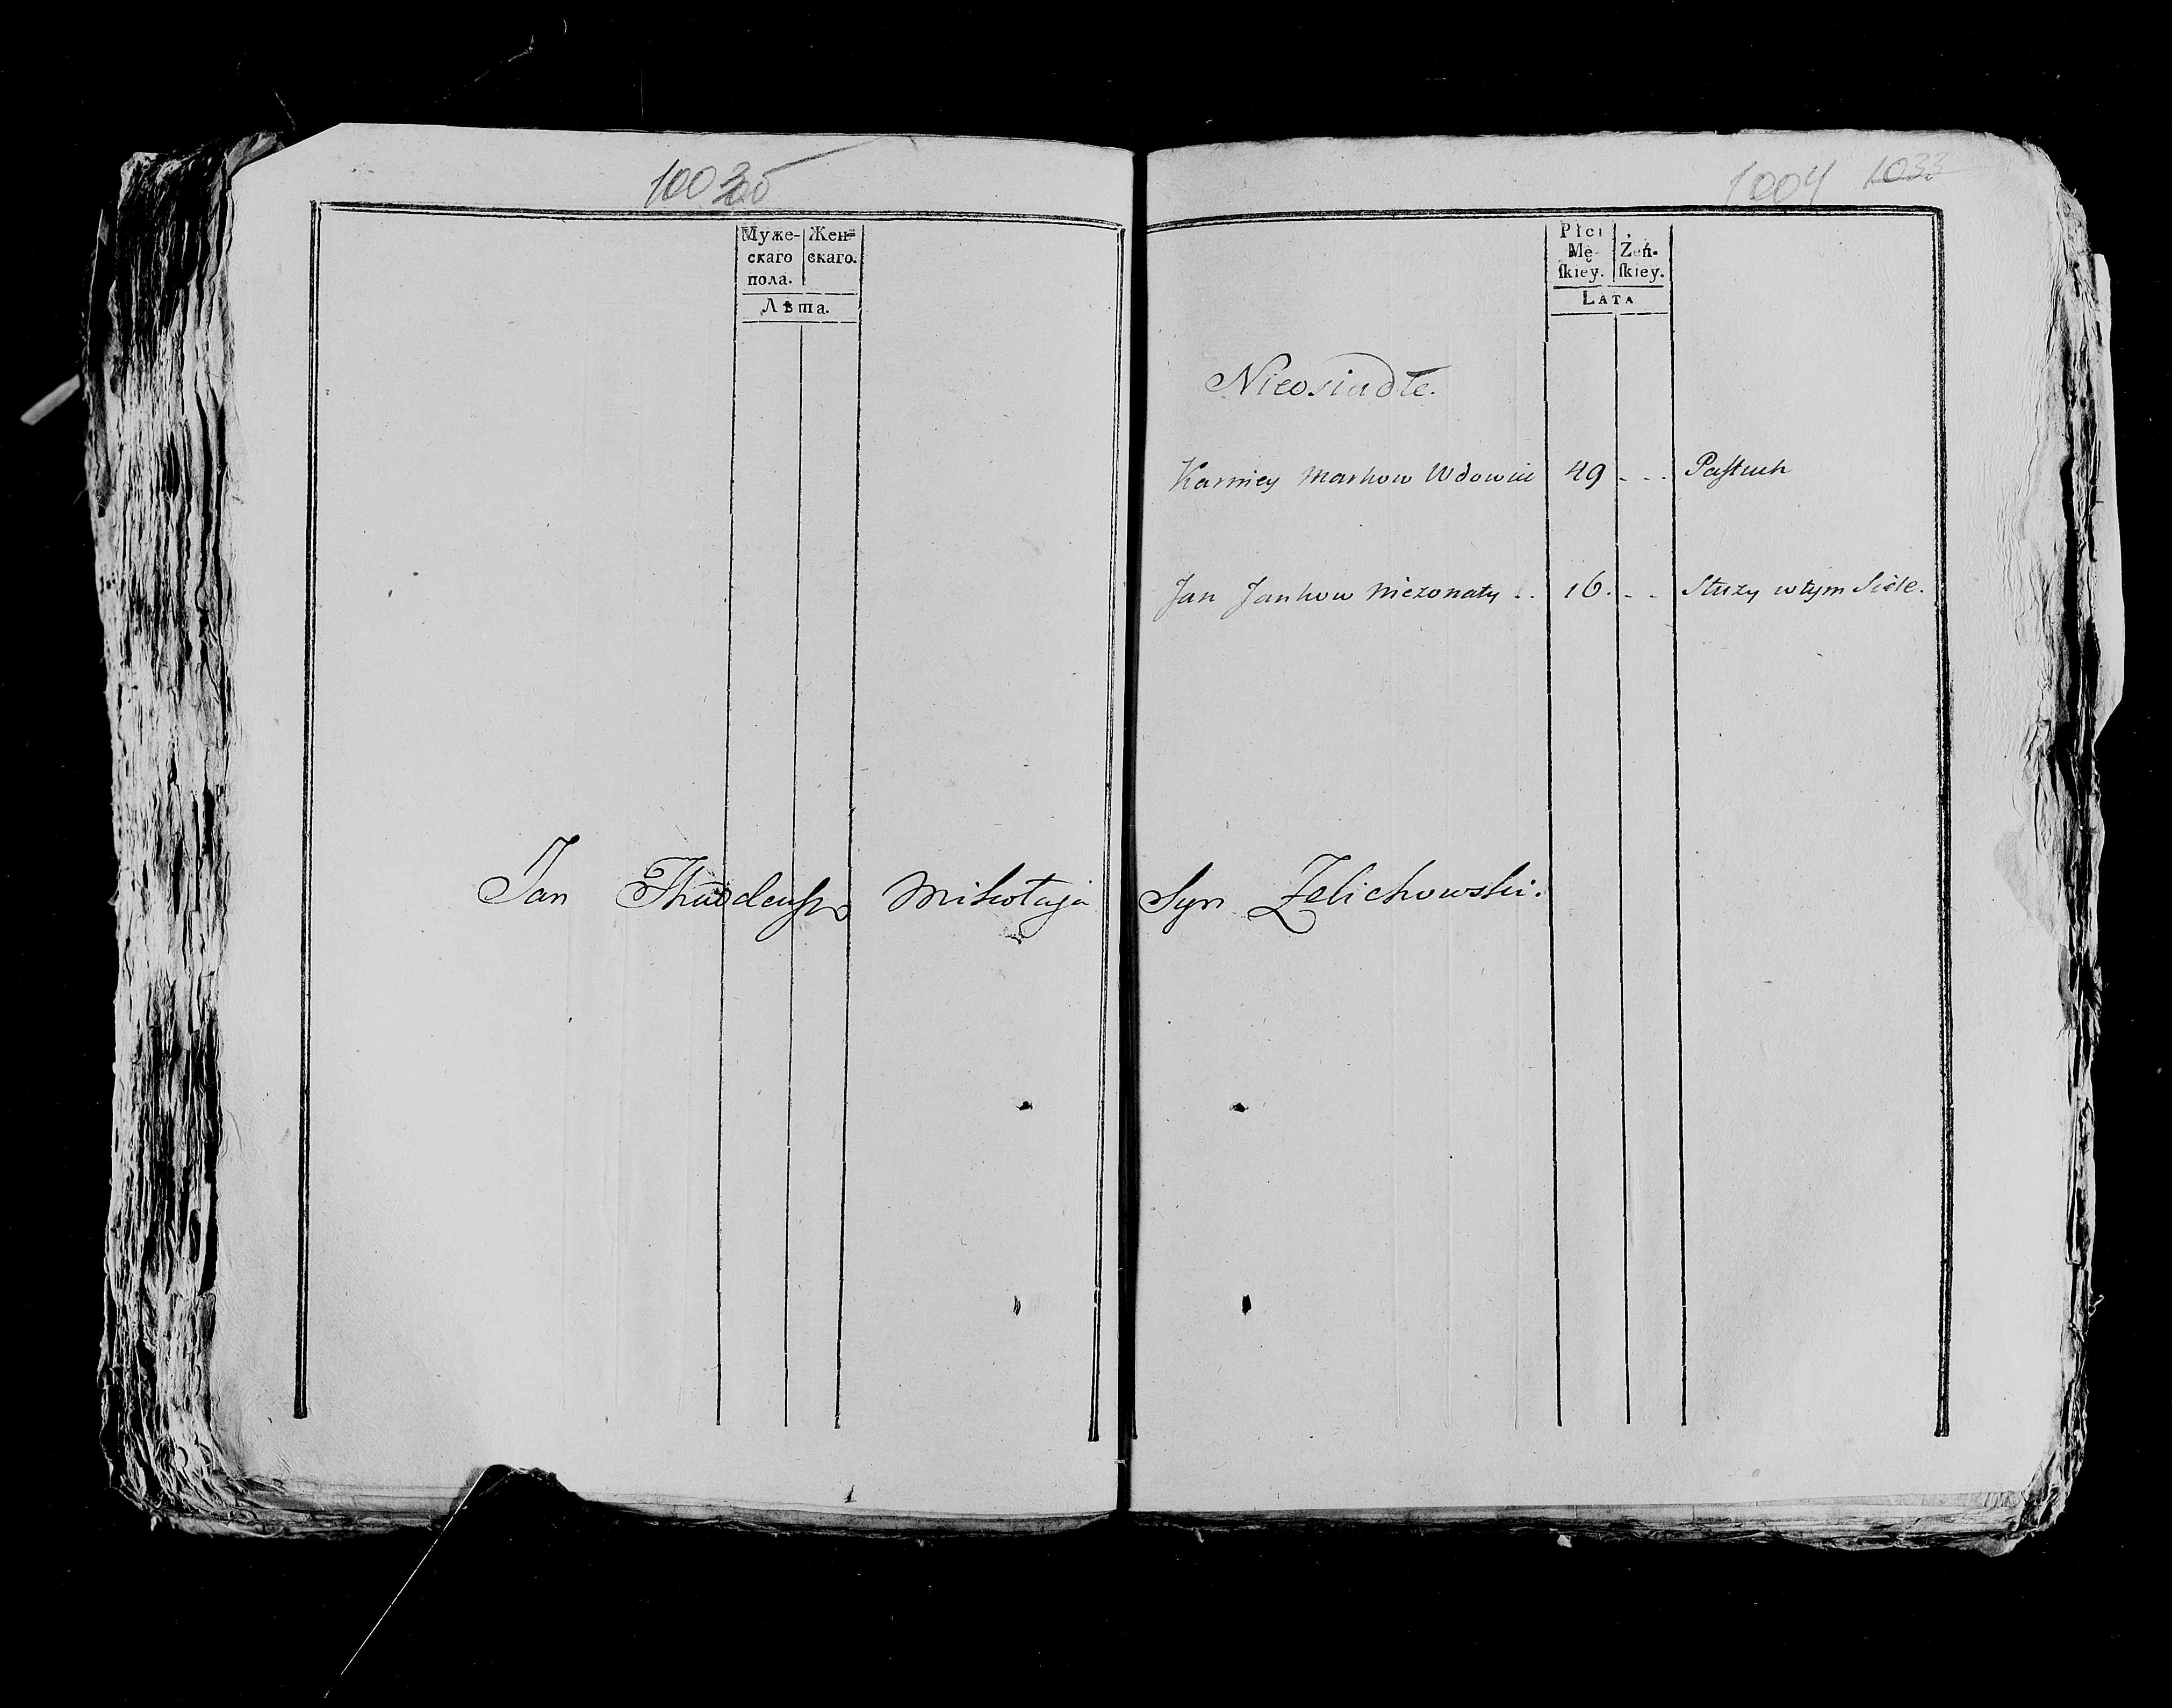 1003об
Муже- Жен-
скаго скаго.
пола.
Лѣта.
1004 1033
Płci
Mę- Żeń-
ſkiey. ſkiey.
LATA
Nieosiadłe.
Karniey Markow Wdowiec 49 - - - Paſtuch
Jan Jankow Nieżonaty .. 16. - - Służy w tym Siele.
Jan Mikołaja Syn Zelichowski.